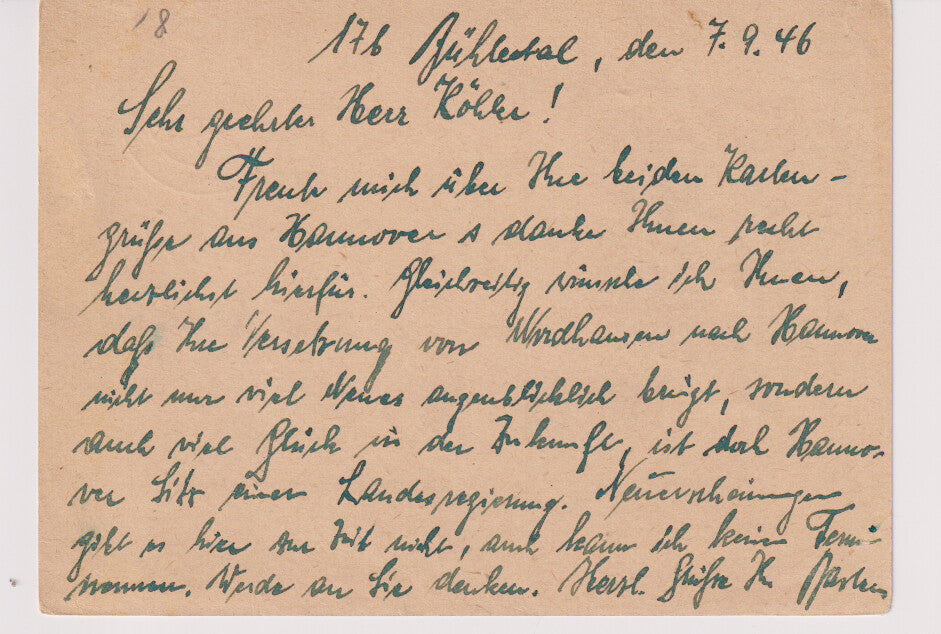 8
17b Bühlertal, den 7.9.46
Sehr geehrter Herr Köhler!
Freute mich über Ihre beiden Karten-
grüße aus Hannover u danke Ihnen recht
herzlichst hierfür. Gleichzeitig wünsche ich Ihnen,
daß Ihre Versetzung von Nordhausen nach Hannover
nicht nur viel Neues augenblicklich bringt, sondern
auch viel Glück in der Zukunft, ist doch Hanno-
ver Sitz einer Landesregierung. Neuerscheinungen
gibt es hier zur Zeit nicht, auch kann ich keine
nennen. Werde an Sie denken. Herzl. Grüße Ihr